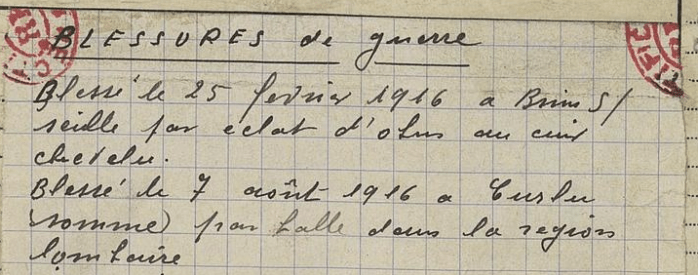 BLESSURES de guerre
Blessé le 25 fevrier 1916 a Brin S/
seille par eclat d'obus au cuir
chevelu.
Blessé le 7 août 1916 a Curlu
(somme) par balle dans la region
lombaire